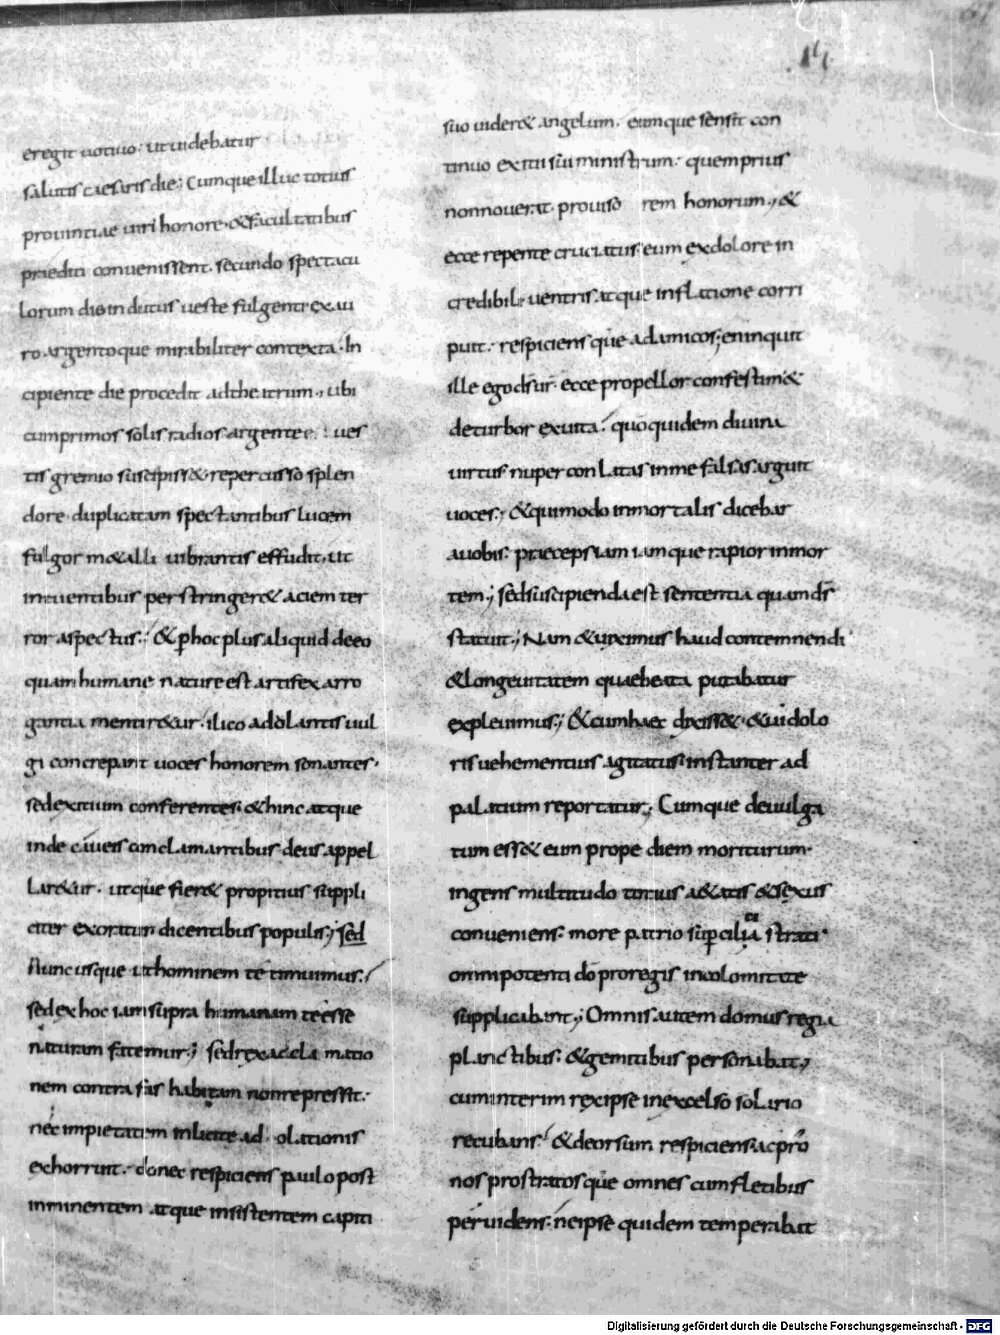 14
eregit uotiuo. ut uidebatur
salutis caesaris die; Cumque illuc totius
prouintiae uiri honore & facultatibus
praediti conuenissent. secundo spectacu
lorum die indutus ueste fulgenti ex au
ro argentoque mirabiliter contexta. In
cipiente die procedit ad theatrum., ubi
cum primos solis radios argenteę ues
tis gremio suscipiss&. repercusso splen
dore duplicatam spectantibus lucem
fulgor m&alli uibrantis effudit., ut
intuentibus perstringer& aciem ter
ror aspectus; & p hoc plus aliquid de eo
quam humane nature est artifex arro
gantia mentir&ur. ilico adolantis uul
gi concrepant uoces honorem sonantes.
sed exitium conferentes. & hinc atque
inde cuneis conclamantibus deus appel
lar&ur. utque fier& propitius suppli
citer exoratur dicentibus populis; sed
Nunc usque ut hominem te timuimus.
sed ex hoc iam supra humanam te esse
naturam fatemur; sed rex accla matio
nem contra fas habitam non repressit.
nec impietatem inlicite ad olationis
exhorruit. donec respiciens paulo post
inminentem atque insistentem capiti
suo uider& angelum. eumque sensit con
tinuo exitii sui ministrum. quem prius
non nouerat. prouisorem honorum., &
ecce repente cruciatus eum ex dolore in
credibili uentris atque inflatione corri
puit. respiciensque ad amicos; en inquit
ille ego ds ur. ecce propellor confestim &
deturbor e uita. quoquidem diuina
uirtus nuper conlatas in me falsas arguit
uoces; & qui modo inmortalis dicebar
a uobis. praeceps iam iamque rapior in mor
tem; sed suscipienda est sententia quam ds
statuit; Nam & uiximus haud contemnendi
& longeuitatem quae beata putabatur
expleuimus; & cum haec dixiss&. & ui dolo
ris uehementius agitatus instanter ad
palatium reportatur; Cumque deuulga
tum ess& eum prope diem moriturum.
ingens multitudo totius a&atis & sexus
conueniens. more patrio sup cilicia strati
omnipotenti do pro regis incolomitate
supplicabant; Omnis autem domus regia
planctibus. & gemitibus personabat;
cum interim rex ipse in excelso solario
recubans. & deorsum respiciens ac pro
nos prostratosque omnes cum fletibus
peruidens. ne ipse quidem temperabat
Digitalisierung gefördert durch die Deutsche Forschungsgemeinschaft - DFG